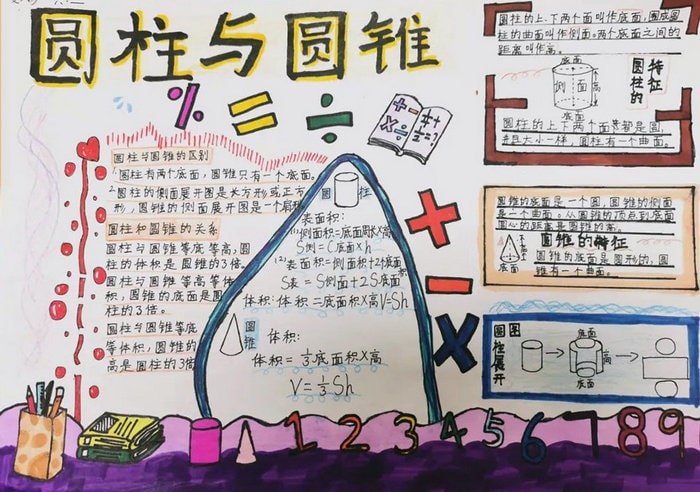 圆柱与圆锥
% = ÷
圆柱与圆锥的区别
1.圆柱有两个底面，圆锥只有一个底面。
2.圆柱的侧面展开图是长方形或正方
形，圆锥的侧面展开图是一个扇形
圆柱和圆锥的关系
圆柱与圆锥等底等高，圆
柱的体积是圆锥的3倍。
圆柱与圆锥等高等体
积，圆锥的底面是圆
柱的3倍。
圆柱与圆锥等底
等体积，圆锥的
高是圆柱的3倍
圆柱
表面积：
(1)侧面积=底面周长×高
S侧=C底面×h
(2)表面积=侧面积+2个底面
S表=S侧面+2S底面
体积：体积=底面积×高V=Sh
圆锥
体积：
体积=1/3底面积×高
V=1/3Sh
+
-
×
圆柱的上、下两个面叫作底面，围成圆
柱的曲面叫作侧面。两个底面之间的
距离叫作高。
圆柱的特征
底面
侧面
高
底面
圆柱的上下两个面都是圆，
并且大小一样，圆柱有一个曲面。
圆锥的底面是一个圆，圆锥的侧面
是一个曲面。从圆锥的顶点到底面
圆心的距离是圆锥的高。
圆锥的特征
底面
圆锥的底面是圆形的，圆
锥有一个曲面。
圆柱展开图
底面
高
底面
1 2 3 4 5 6 7 8 9